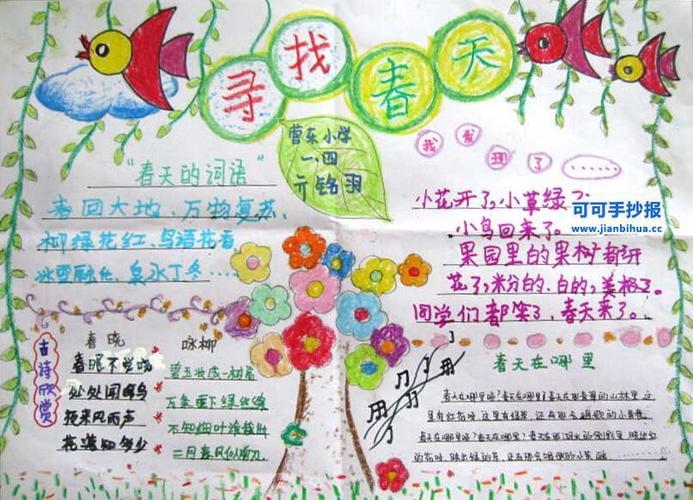 寻找春天
营东小学
一.四
亓铭羽
我发现了......
可可手抄报
www.jianbihua.cc
"春天的词语"
春回大地、万物复苏、
柳绿花红、鸟语花香、
冰雪融化、泉水丁冬....
小花开了,小草绿了
小鸟回来了。
果园里的果树都开
花了,粉的、白的,美极了。
同学们都笑了,春天来了。
古诗欣赏
春晓
春眠不觉晓
处处闻啼鸟
夜来风雨声
花落知多少
咏柳
碧玉妆成一树高
万条垂下绿丝绦
不知细叶谁裁出
二月春风似剪刀
春天在哪里
春天在哪里呀?春天在哪里?春天在那青翠的山林里,这
里有红花呀,这里有绿草,还有那会唱歌的小黄鹂
春天在哪里呀?春天在哪里?春天在那湖水的倒影里,映出红
的花呀,映出绿的草,还有那会唱歌的小黄鹂